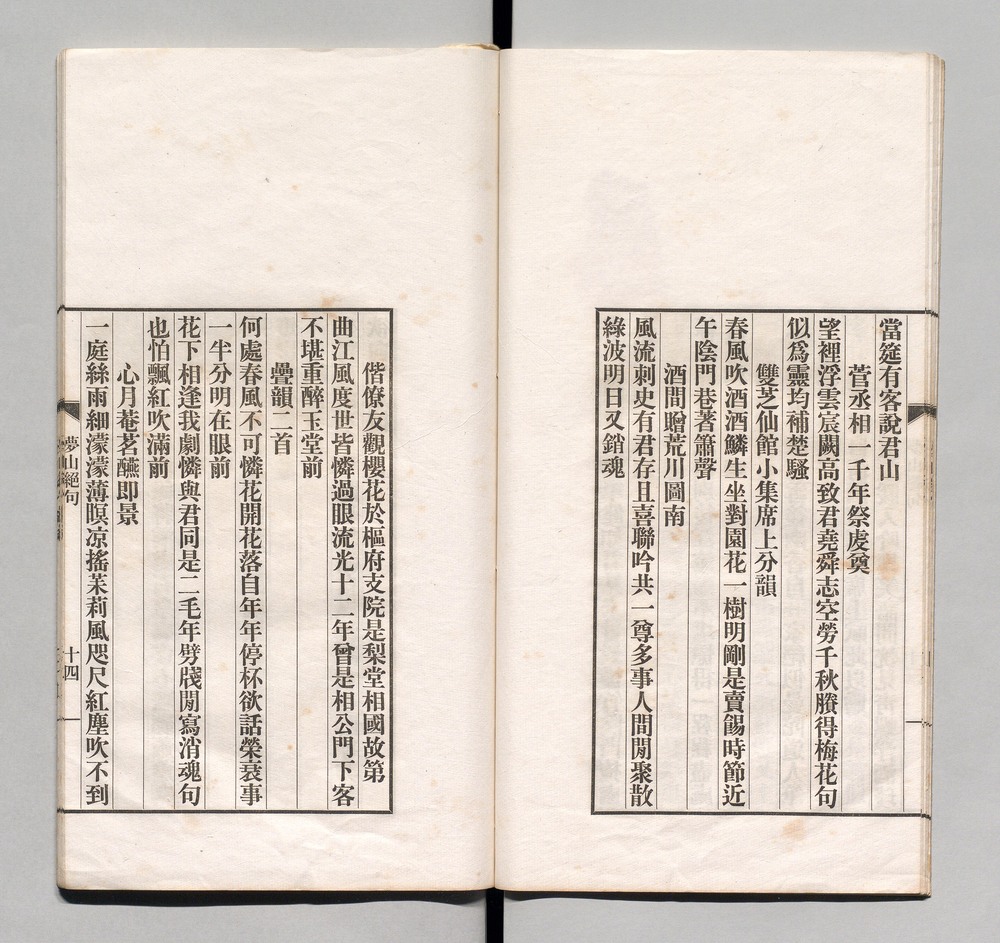 當筵有客說君山
菅丞相一千年祭虔奠
望裡浮雲宸闕高致君堯舜志空勞千秋賸得梅花句
似爲靈均補楚騷
雙芝仙館小集席上分韻
春風吹酒酒鱗生坐對園花一樹明剛是賣餳時節近
午陰門巷著簫聲
酒間贈荒川圖南
風流刺史有君存且喜聯吟共一尊多事人間閒聚散
綠波明日又銷魂
偕僚友觀櫻花於樞府支院是梨堂相國故第
曲江風度世皆憐過眼流光十二年曾是相公門下客
不堪重醉玉堂前
疊韻二首
何處春風不可憐花開花落自年年停杯欲話榮衰事
一半分明在眼前
花下相逢我劇憐與君同是二毛年劈牋閒寫消魂句
也怕飄紅吹滿前
心月菴茗讌即景
一庭絲雨細濛濛薄暝凉搖茉莉風咫尺紅塵吹不到
夢山絕句
十四